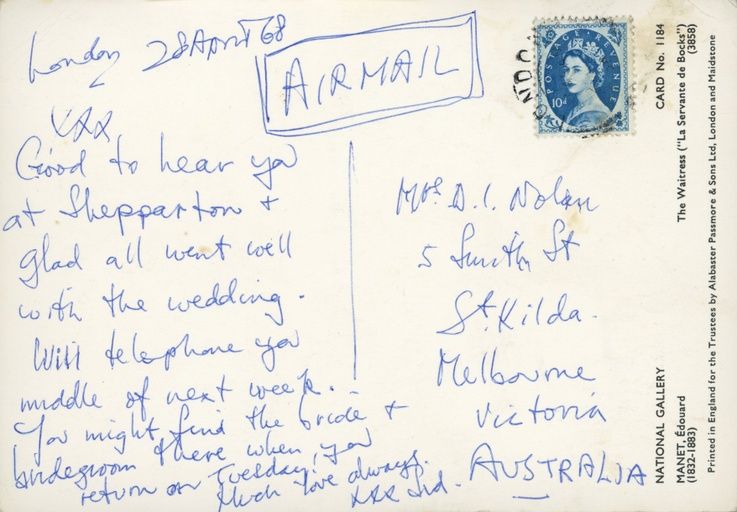 London 28 April 68
AIRMAIL
XXX
Good to hear you
at Shepparton +
glad all went well
with the wedding.
Will telephone you
middle of next week.
You might find the bride +
bridegroom there when you
return on Tuesday.
Much love always.
xxx Sid.
Mrs D. I. Nolan
5 Smith St
St. Kilda.
Melbourne
Victoria
AUSTRALIA
POSTAGE REVENUE
10d
NATIONAL GALLERY CARD No. 1184
MANET, Édouard The Waitress ("La Servante de Bocks")
(1832-1883) (3858)
Printed in England for the Trustees by Alabaster Passmore & Sons Ltd, London and Maidstone